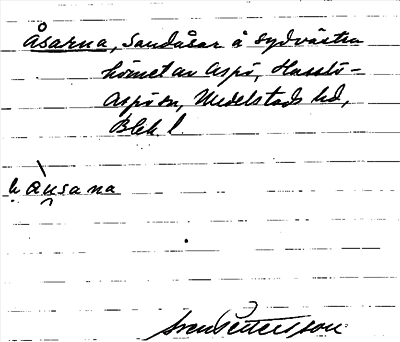 Åsarna, Sandåsar å sydvästra
hörnet av Aspö, Hasslö-
Aspö sn, Medelstads hd,
Blek. l.
Sven Pettersson